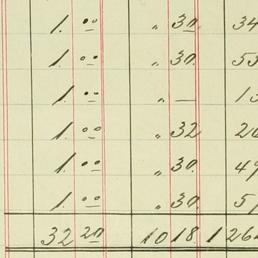 1. 00 " 30. 34
1. 00 " 30. 55
1. 00 " —
1. 00 " 32 26
1. 00 " 30. 49
1. 00 " 30. 51
32 20 10 18. 1 26